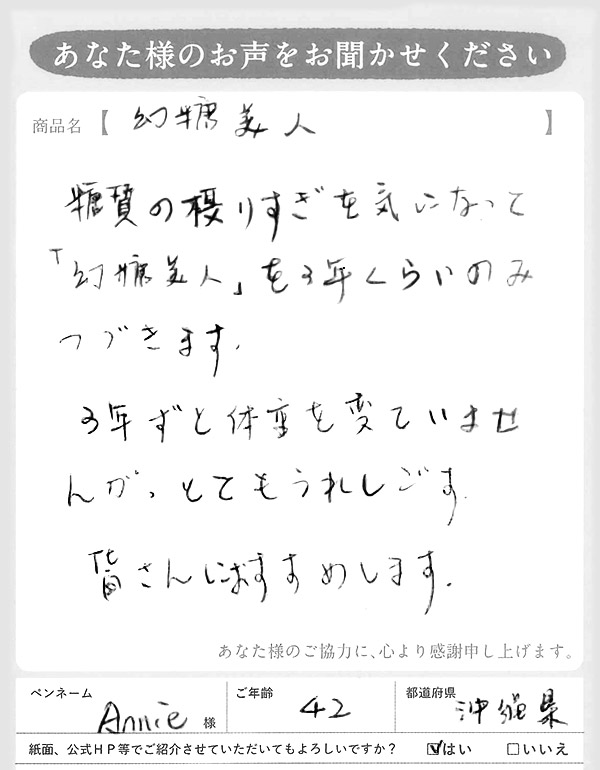 あなた様のお声をお聞かせください
商品名【 幻糖美人 】
糖質の摂りすぎを気になって
「幻糖美人」を3年くらいのみ
つづきます。
3年ずと体重を変ていませ
んが、とてもうれしごす。
皆さんにおすすめします。
あなた様のご協力に、心より感謝申し上げます。
ペンネーム Annie 様 ご年齢 42 都道府県 沖縄県
紙面、公式HP等でご紹介させていただいてもよろしいですか? ☑はい □いいえ